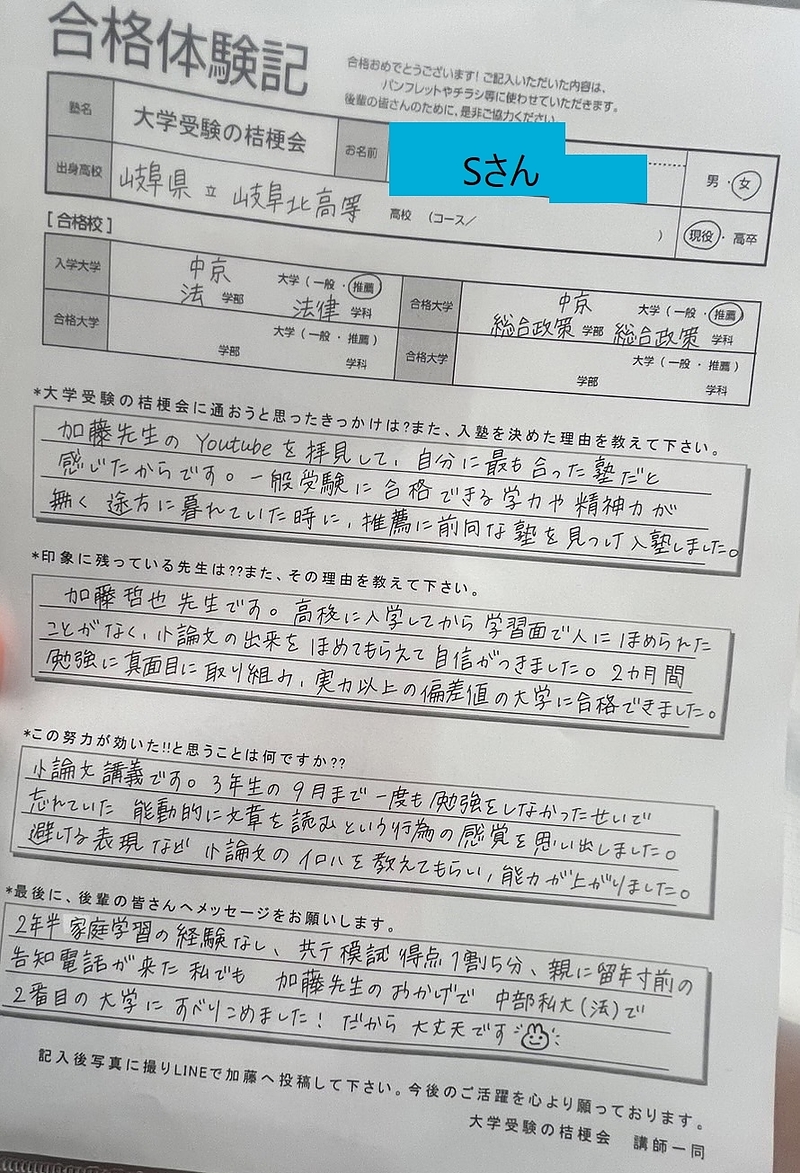 合格体験記
合格おめでとうございます!ご記入いただいた内容は、
パンフレットやチラシ等に使わせていただきます。
後輩の皆さんのために、是非ご協力ください。
塾名 大学受験の桔梗会 お名前 Sさん 男・女
出身高校 岐阜県立岐阜北高等 高校 (コース/ ) 現役・高卒
[合格校]
入学大学 中京 大学(一般・推薦)
法 学部 法律 学科
合格大学 中京 大学(一般・推薦)
総合政策 学部 総合政策 学科
合格大学 大学(一般・推薦)
学部 学科
合格大学 大学(一般・推薦)
学部 学科
*大学受験の桔梗会に通おうと思ったきっかけは?また、入塾を決めた理由を教えて下さい。
加藤先生の Youtubeを拝見して、自分に最も合った塾だと
感じたからです。一般受験に合格できる学力や精神力が
無く途方に暮れていた時に、推薦に前向な塾を見つけ入塾しました。
*印象に残っている先生は??また、その理由を教えて下さい。
加藤哲也先生です。高校に入学してから学習面で人にほめられた
ことがなく、小論文の出来をほめてもらえて自信がつきました。2カ月間
勉強に真面目に取り組み、実力以上の偏差値の大学に合格できました。
*この努力が効いた!!と思うことは何ですか??
小論文講義です。3年生の9月まで一度も勉強をしなかったせいで
忘れていた能動的に文章を読むという行為の感覚を思い出しました。
避ける表現など小論文のイロハを教えてもらい、能力が上がりました。
*最後に、後輩の皆さんへメッセージをお願いします。
2年半家庭学習の経験なし、共テ模試得点1割5分、親に留年寸前の
告知電話が来た私でも 加藤先生のおかげで 中部私大(法)で
2番目の大学にすべりこめました!だから大丈夫です
記入後写真に撮りLINEで加藤へ投稿して下さい。今後のご活躍を心より願っております。
大学受験の桔梗会 講師一同